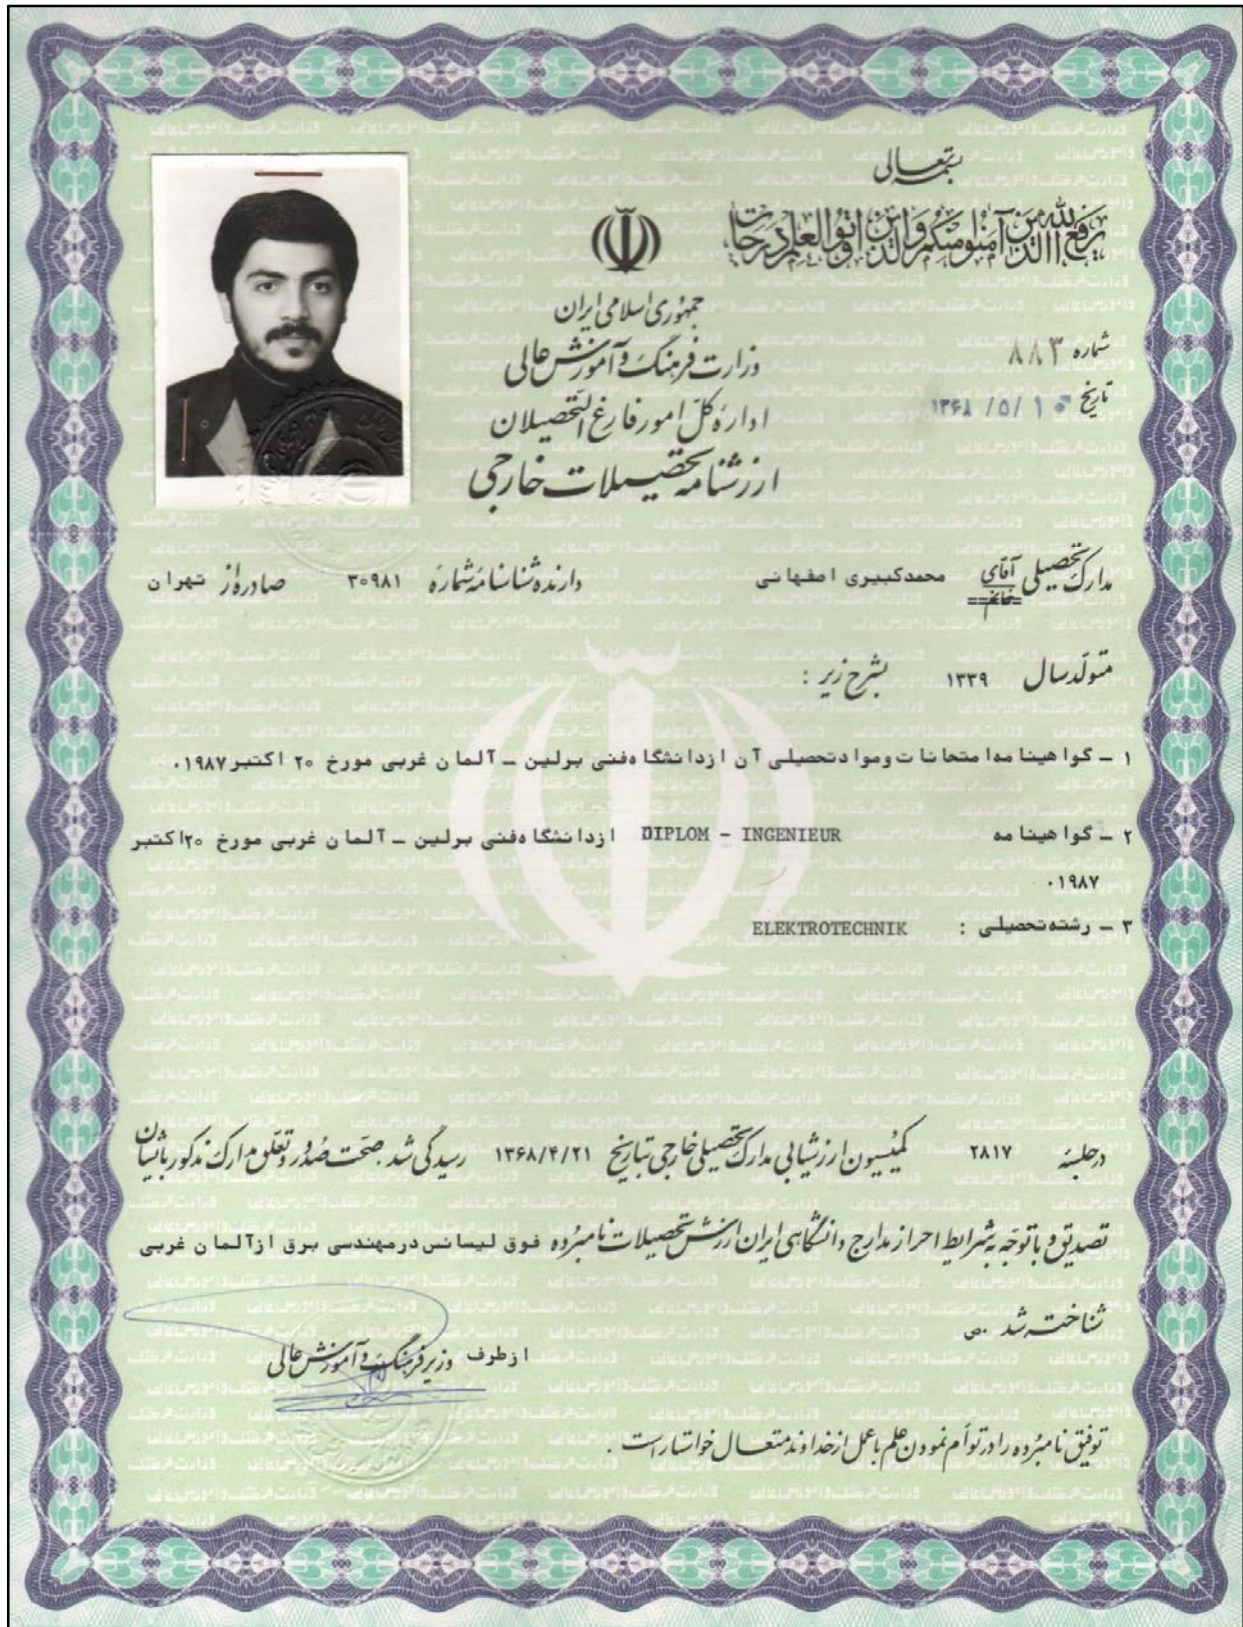 بسمه تعالی
یرفع الله الذین آمنوا منکم والذین اوتوا العلم درجات
جمهوری اسلامی ایران
وزارت فرهنگ و آموزش عالی
اداره کل امور فارغ التحصیلان
ارزشنامه تحصیلات خارجی
شماره ۸۸۳
تاریخ ۱۳۶۸ /۵/ ۱۰
مدارک تحصیلی آقای خانم محمدکبیری اصفهانی دارنده شناسنامه شماره ۳۰۹۸۱ صادره از تهران
متولد سال ۱۳۳۹ بشرح زیر :
۱ - گواهینامه امتحانات و مواد تحصیلی آن از دانشگاه فنی برلین - آلمان غربی مورخ ۲۰ اکتبر ۱۹۸۷.
۲ - گواهینامه DIPLOM - INGENIEUR از دانشگاه فنی برلین - آلمان غربی مورخ ۲۰ اکتبر
۱۹۸۷.
۳ - رشته تحصیلی : ELEKTROTECHNIK
در جلسه ۲۸۱۷ کمیسیون ارزشیابی مدارک تحصیلی خارجی بتاریخ ۱۳۶۸/۴/۲۱ رسیدگی شد. صحت صدور و تعلق مدارک مذکور بایشان
تصدیق و با توجه به شرایط احراز مدارج دانشگاهی ایران ارزش تحصیلات نامبرده فوق لیسانس در مهندسی برق از آلمان غربی
شناخته شد .ص
از طرف وزیر فرهنگ و آموزش عالی
توفیق نامبرده را در توأم نمودن علم با عمل از خداوند متعال خواستار است .